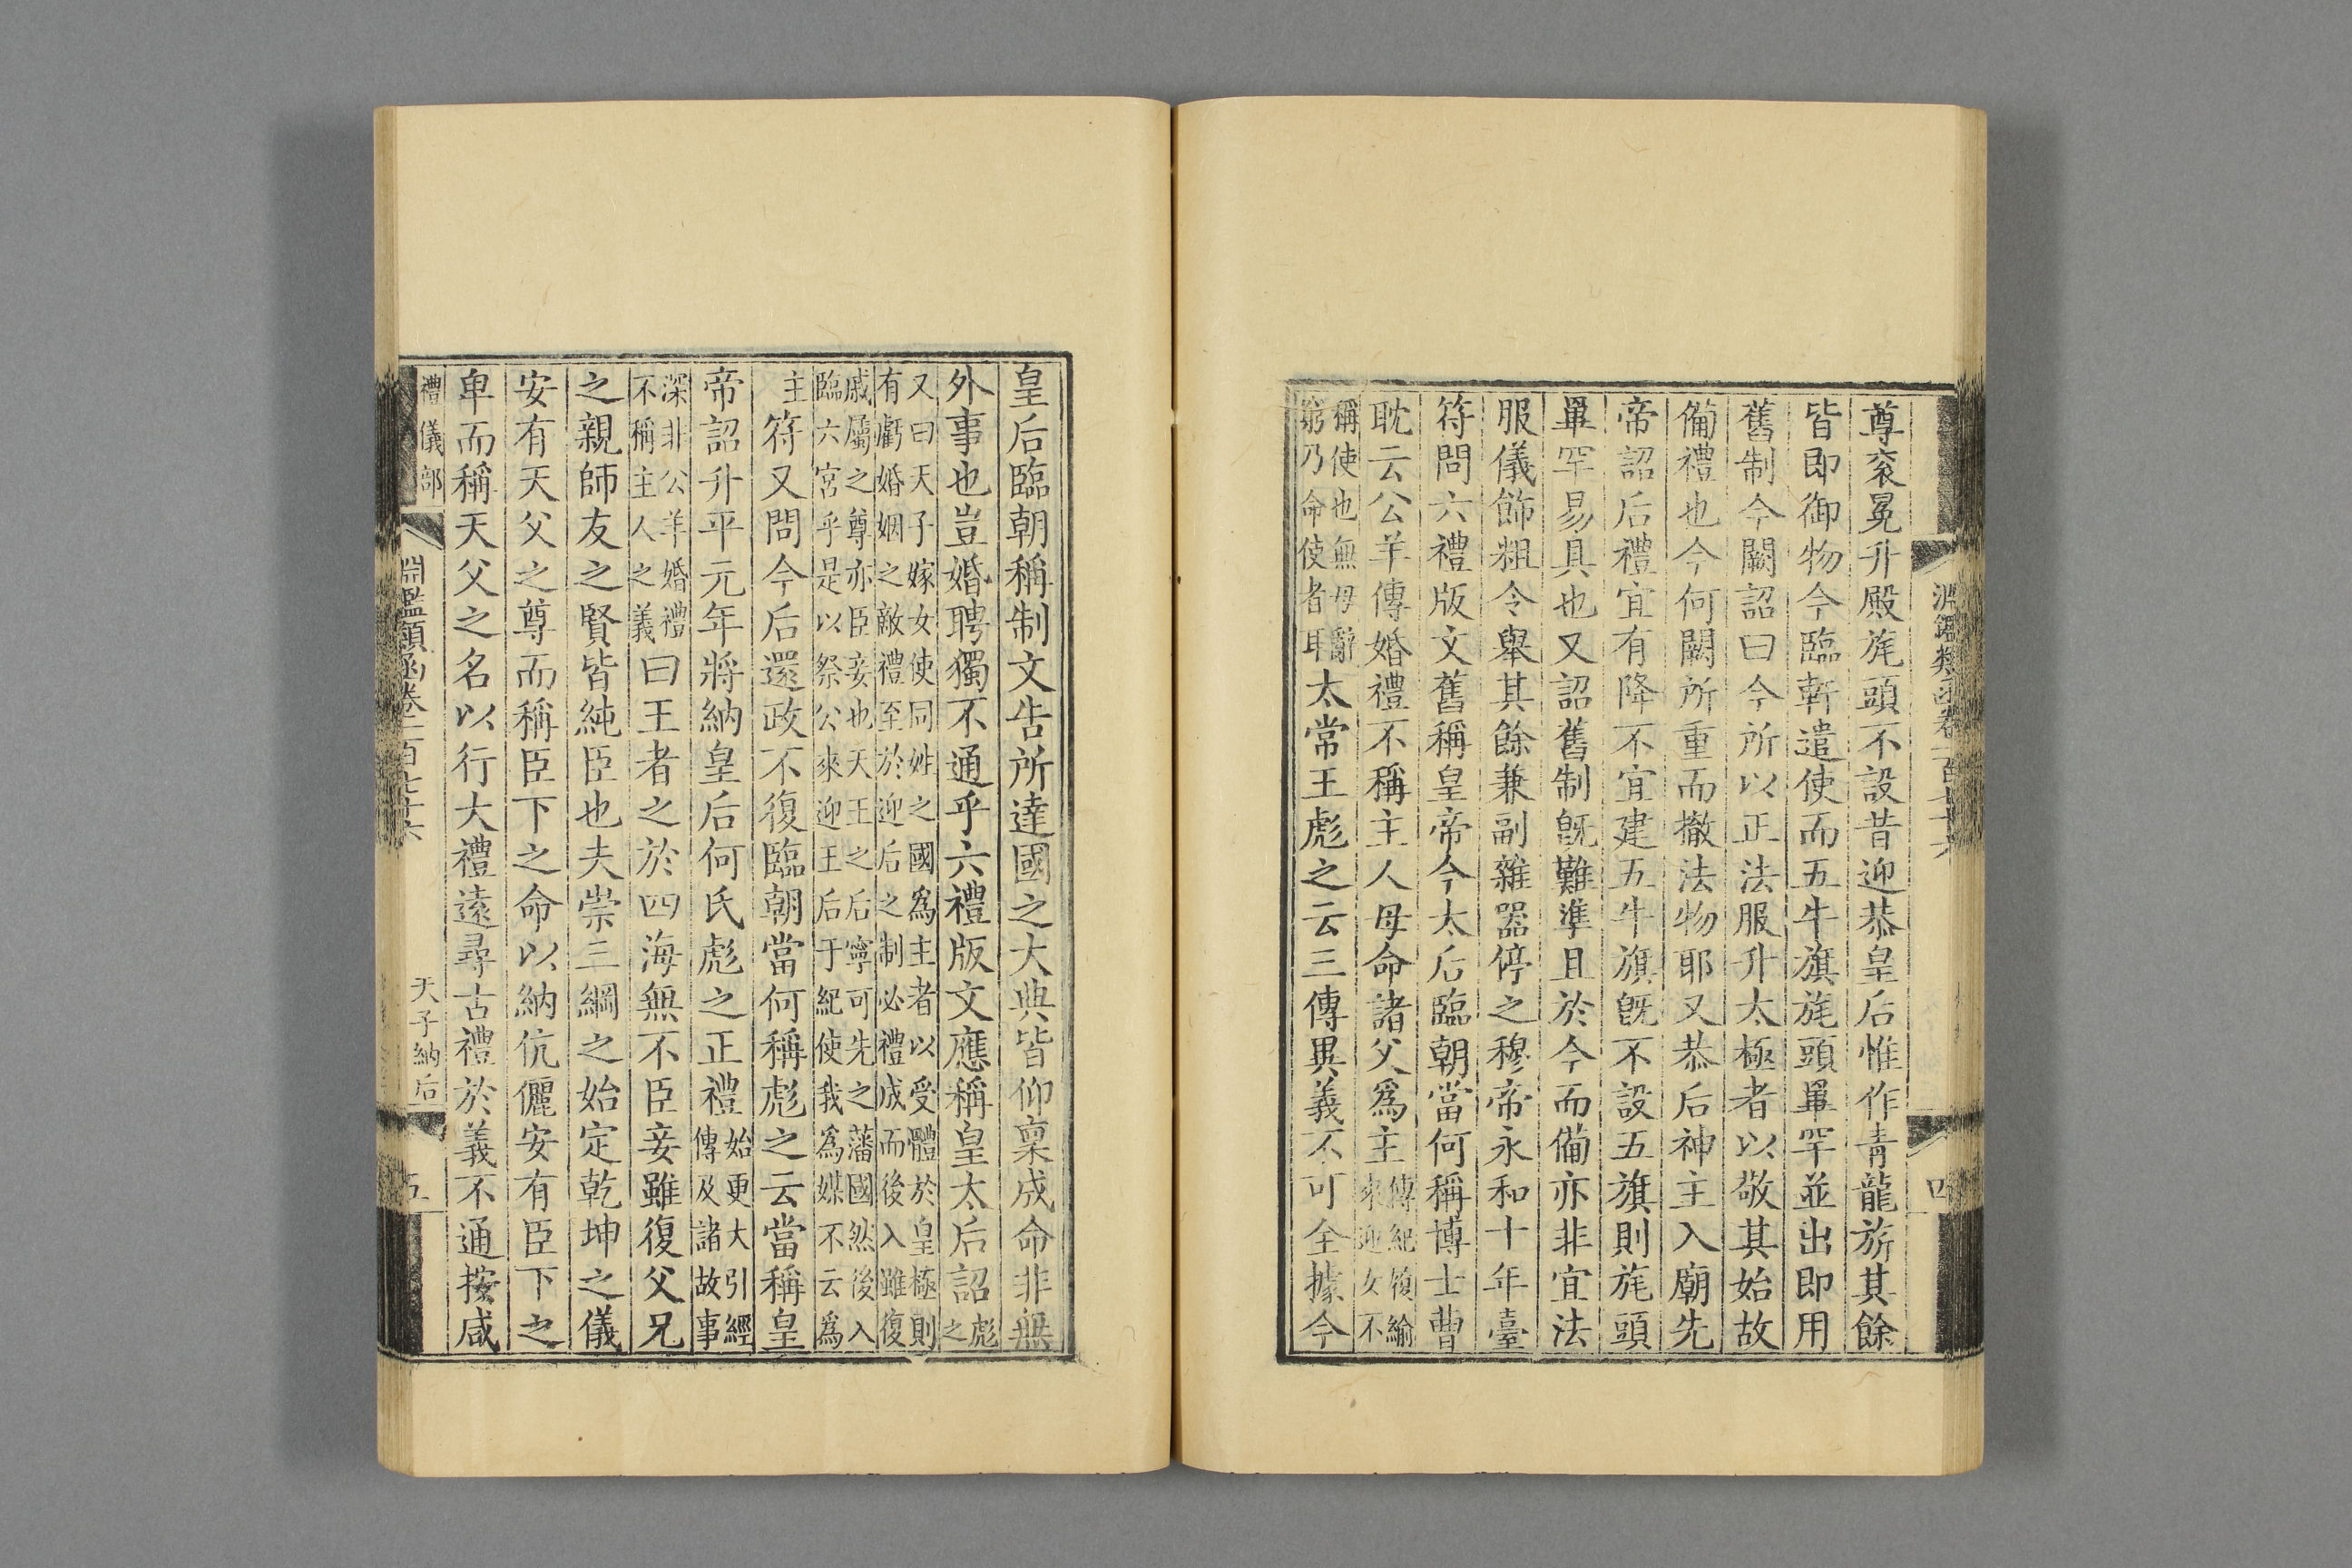 尊衮冕升殿旄頭不設昔迎恭皇后惟作青龍旂其餘
皆即御物今臨軒遣使而五牛旗旄頭畢罕並出即用
舊制今闕詔曰今所以正法服升太極者以敬其始故
備禮也今何闕所重而撤法物耶又恭后神主入廟先
帝詔后禮宜有降不宜建五牛旗旣不設五旗則旄頭
畢罕易具也又詔舊制旣難準且於今而備亦非宜法
服儀飾粗令舉其餘兼副雜器停之穆帝永和十年臺
符問六禮版文舊稱皇帝今太后臨朝當何稱博士曹
耽云公羊傳婚禮不稱主人母命諸父爲主傳紀履緰
來迎女不
稱使也無母辭
窮乃命使者耳太常王彪之云三傳異義不可全據今
皇后臨朝稱制文告所達國之大典皆仰稟成命非無
外事也豈婚聘獨不通乎六禮版文應稱皇太后詔彪
之
又曰天子嫁女使同姓之國爲主者以受體於皇極則
有虧婚姻之敵禮至於迎后之制必禮成而後入雖復
戚屬之尊亦臣妾也天王之后寧可先之藩國然後入
臨六宮乎是以祭公來迎王后于紀使我爲媒不云爲
主符又問今后還政不復臨朝當何稱彪之云當稱皇
帝詔升平元年將納皇后何氏彪之正禮始更大引經
傳及諸故事
深非公羊婚禮
不稱主人之義曰王者之於四海無不臣妾雖復父兄
之親師友之賢皆純臣也夫崇三綱之始定乾坤之儀
安有天父之尊而稱臣下之命以納伉儷安有臣下之
卑而稱天父之名以行大禮遠尋古禮於義不通按咸
禮儀部
淵鑑類函卷二百七十六
天子納后
五